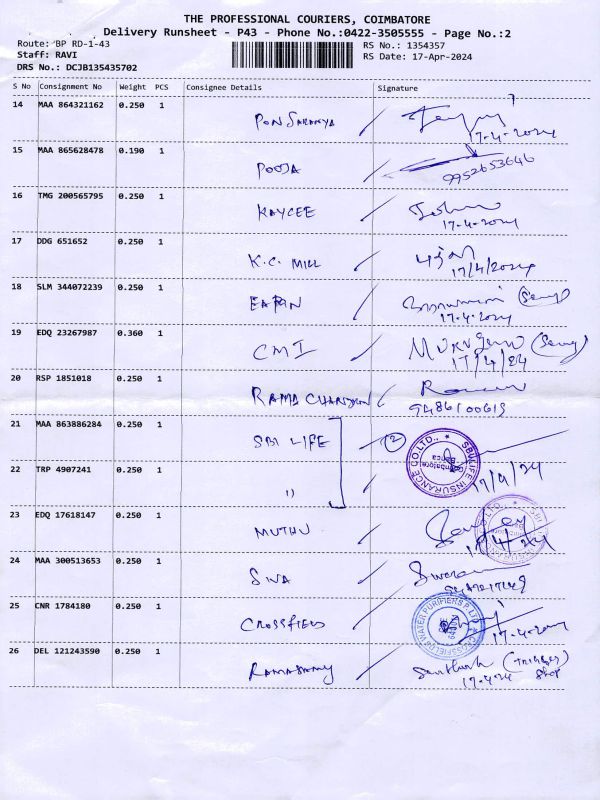 THE PROFESSIONAL COURIERS, COIMBATORE
Delivery Runsheet - P43 - Phone No.:0422-3505555 - Page No.:2
Route: BP RD-1-43
RS No.: 1354357
Staff: RAVI
RS Date: 17-Apr-2024
DRS No.: DCJB135435702
S No Consignment No Weight PCS Consignee Details Signature
14 MAA 864321162 0.250 1
PON SARANYA
17-4-2024
15 MAA 865628478 0.190 1
POOJA
9952653646
16 TMG 200565795 0.250 1
KAYCEE
17-4-2024
17 DDG 651652 0.250 1
K.C. MILL
17/4/2024
18 SLM 344072239 0.250 1
(Seng)
17-4-2024
19 EDQ 23267987 0.360 1
CMI
(Seng)
17/4/24
20 RSP 1851018 0.250 1
RAMA CHANDRAN
21 MAA 863886284 0.250 1
SBI LIFE (2)
SBI LIFE INSURANCE CO.LTD.,
22 TRP 4907241 0.250 1
"
17/4/24
23 EDQ 17618147 0.250 1
MUTHU
17/4/24
24 MAA 300513653 0.250 1
SWA
25 CNR 1784180 0.250 1
CROSSFIELD
CROSSFIELD WATER PURIFIERS P.LTD
17-4-2024
26 DEL 121243590 0.250 1
RAMASAMY
Santhosh
17-4-24 Shop